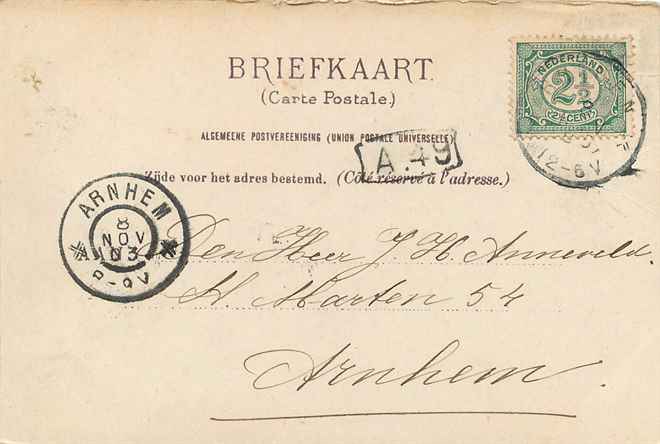 BRIEFKAART.
(Carte Postale.)
ALGEMEENE POSTVEREENIGING (UNION POSTALE UNIVERSELLE)
Zijde voor het adres bestemd. (Côté réservé à l'adresse.)
NEDERLAND
2½
(2½ CENT)
12-6 V
A.49
ARNHEM
8
NOV
03
8-9V
Den Heer J. H. Anneveld.
H. Marten 54
Arnhem.